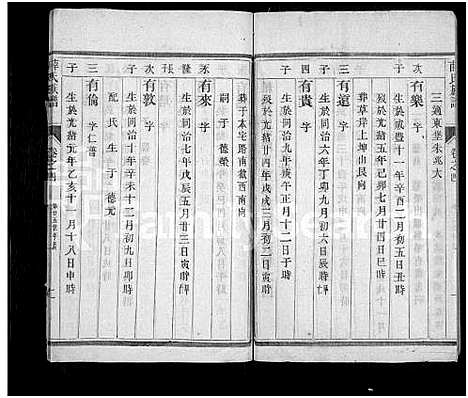 薛氏族譜
卷之四
三適東堡朱兆大
次 有樂 字
生於咸豐十一年辛酉二月初五日丑時
歿於光緒五年己卯七月廿四日巳時
葬草岸上坤山艮向
三 有道 字
生於同治六年丁卯二月初六日辰時
子 有貴 字
生於同治十年壬午正月十二日子時
歿於光緒廿四年戊戌三月初二日寅時
葬于大宅路南截西南向
嗣子 德榮
承 有來 字
生於同治七年戊辰五月廿三日寅時
次 有敦 字
生於同治十年辛未十二月初九日卯時
配氏 子 德元
三 有倫 字仁普
子 生於光緒元年乙亥十一月十八日申時
薛氏族譜
卷之四